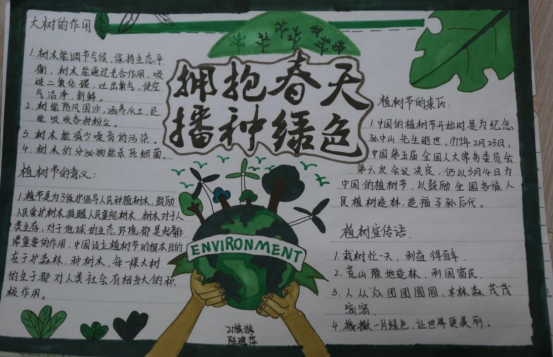 大树的作用
1.树木能调节气候,保持生态平
衡,树木能通过光合作用,吸
进二氧化碳,吐出氧气,使空
气洁净、新鲜。
2.树能防风固沙,涵养水土,还
能吸收各种粉尘。
3.树木能减少噪音的污染。
4.树木的分泌物能杀死细菌。
植树节的意义:
1.植树节是为了保护
人民爱护树木,提醒人民重视树木,树木对于人
类生存,对于地球的生态环境,都是起着
重要的作用,中国设立植树节的根本目的
在于护森林,种树木,每一棵大树
的生于都对人类社会有相当大的积
极作用。
拥抱春天
播种绿色
ENVIRONMENT
植树节的来历:
1.中国的植树节开始时是为纪念
孙中山先生逝世,1979年2月23日,
中国第五届全国人大常务委员会
第六次会议决定,仍以3月14日为
中国的植树节,以鼓励全国各族人
民植树造林,造福子孙后代。
植树宣传语
1.栽树忙一天,利益得百年
2.荒山造林,利国富民
3.人从众团团圆圆,木林森茂茂
4.一片绿色,让世界更美丽。